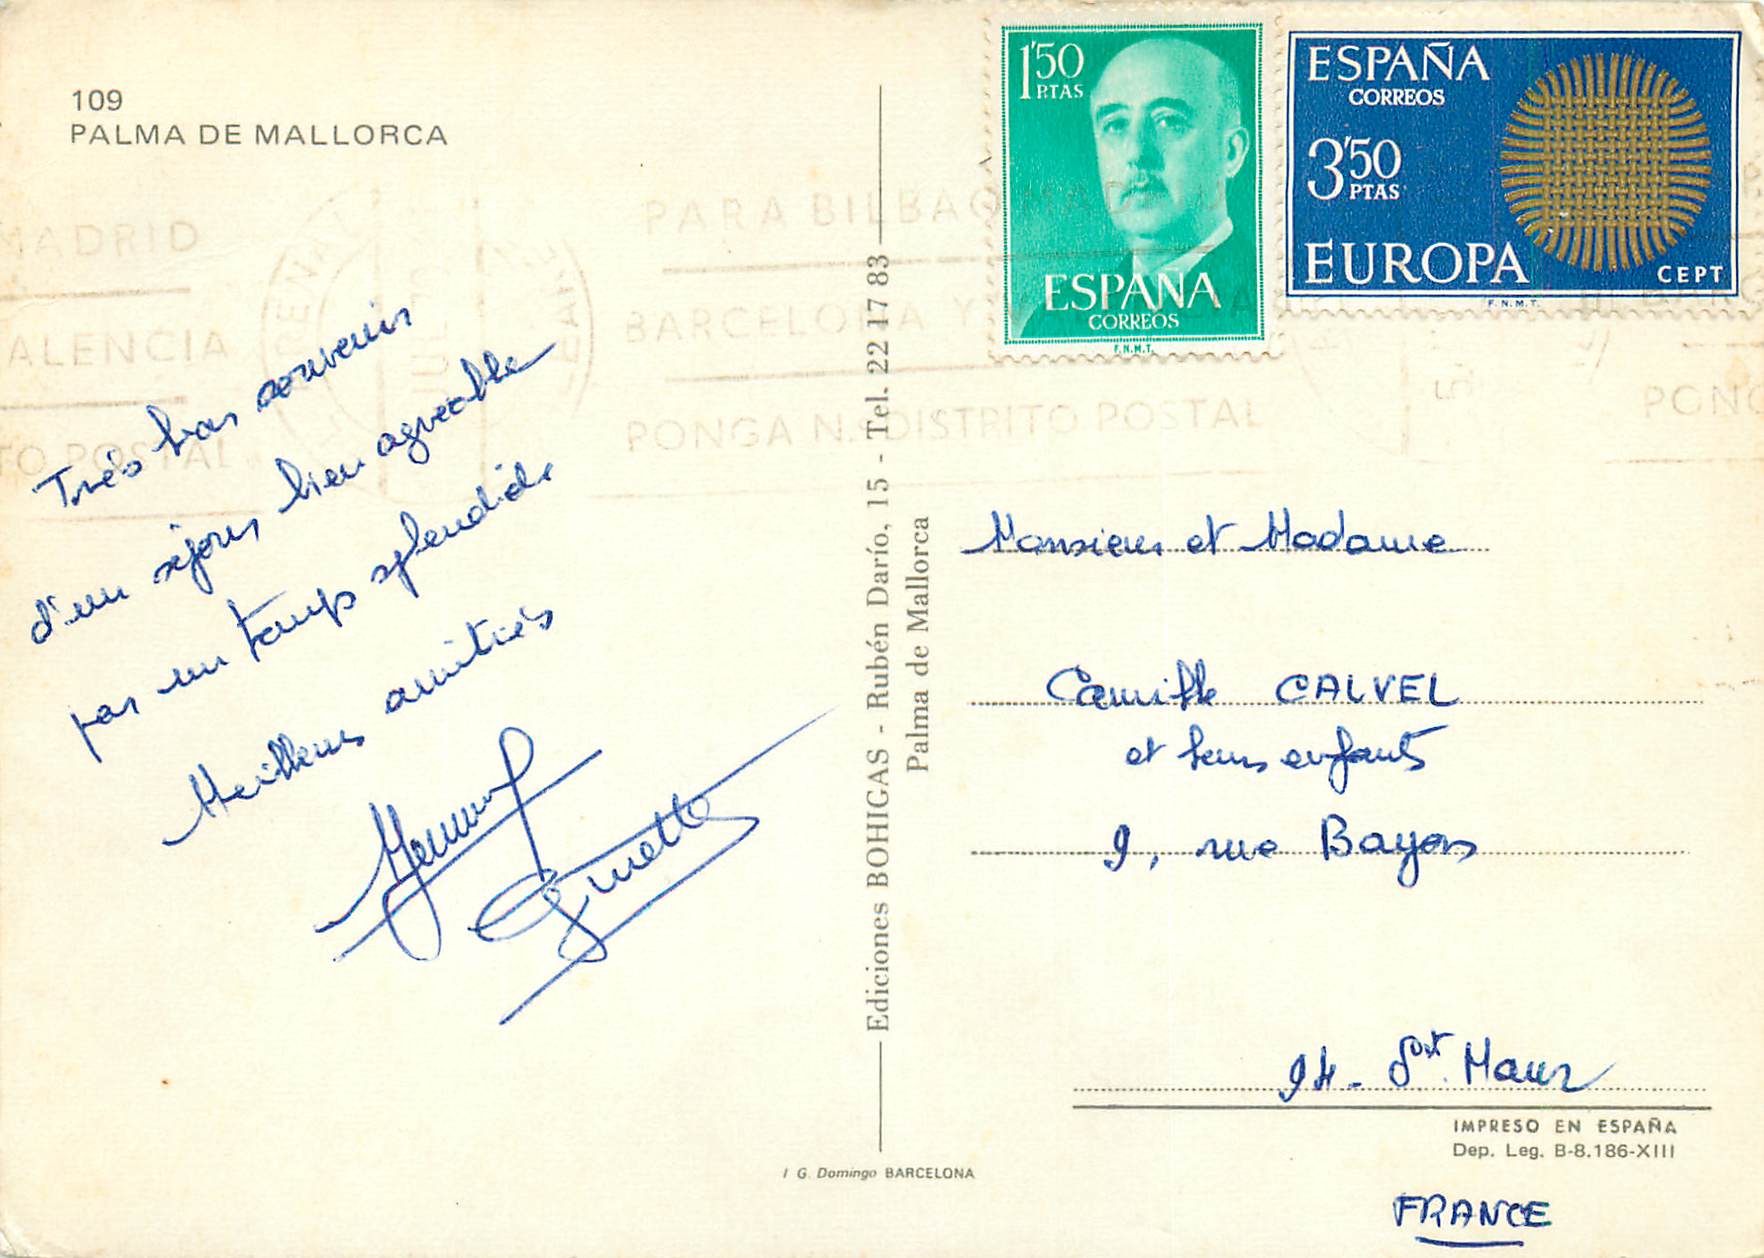 109
PALMA DE MALLORCA
Très bons souvenirs
d'un séjour bien agréable
par un temps splendide
Meilleures amitiés
Ginette
Ediciones BOHIGAS - Rubén Darío, 15 - Tel. 22 17 83
Palma de Mallorca
I G. Domingo BARCELONA
1'50
PTAS
ESPAÑA
CORREOS
F.N.M.T.
ESPAÑA
CORREOS
3'50
PTAS
EUROPA
CEPT
F.N.M.T.
MADRID
ALENCIA
TO POSTAL
PARA BILBAO MADRID
BARCELONA Y VALENCIA
PONGA N.º DISTRITO POSTAL
BARC
PONG
Monsieur et Madame
Camille CALVEL
et leurs enfants
9, rue Bayon
94 - St. Maur
IMPRESO EN ESPAÑA
Dep. Leg. B-8.186-XIII
FRANCE